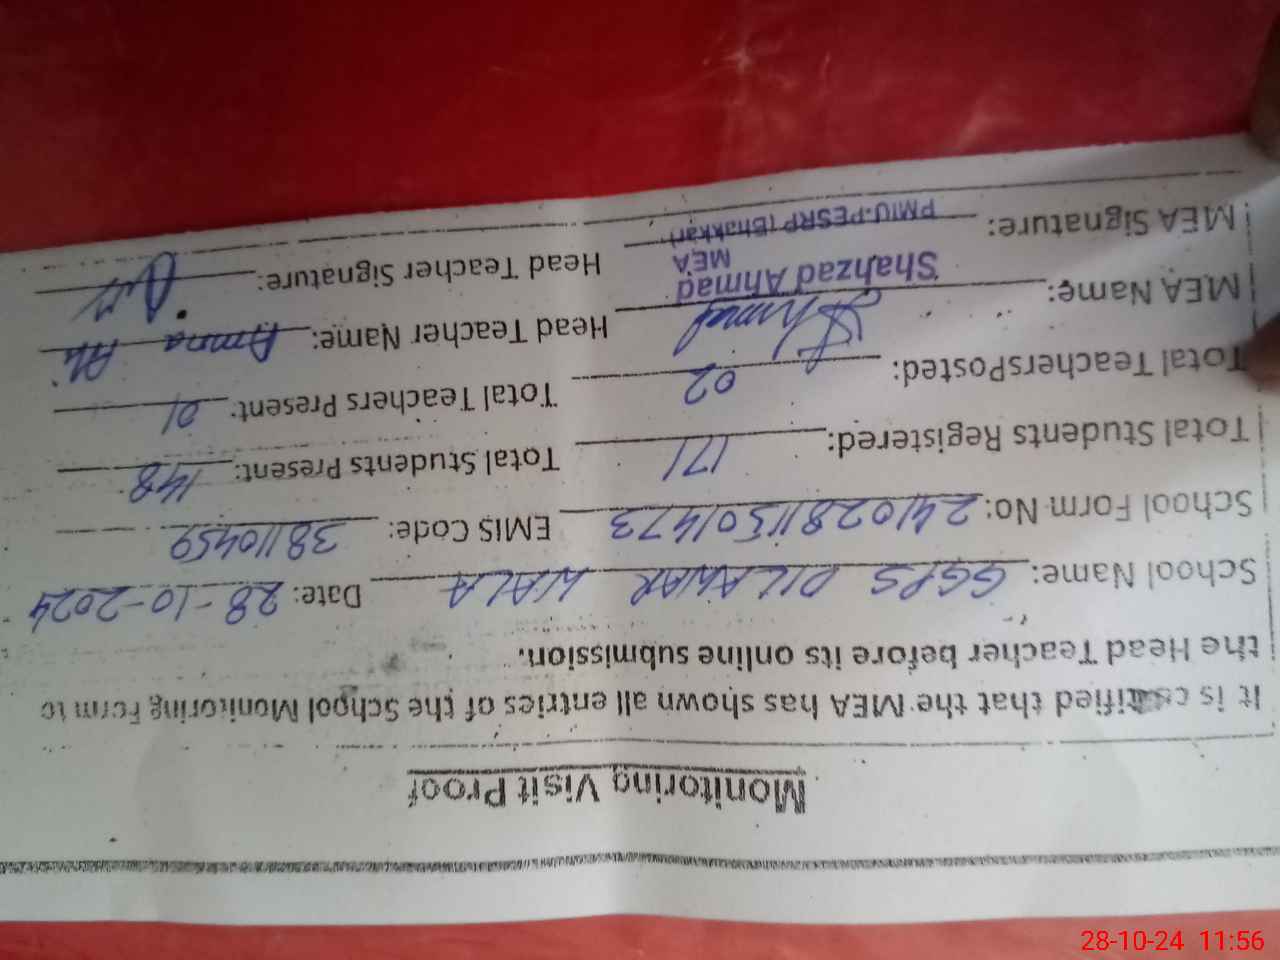 Monitoring Visit Proof
It is certified that the MEA has shown all entries of the School Monitoring Form to
the Head Teacher before its online submission.
School Name: GGPS DILAWAR WALA Date: 28-10-2024
School Form No: 24102811501473 EMIS Code: 38110459
Total Students Registered: 171 Total Students Present: 148
Total TeachersPosted: 02 Total Teachers Present: 01
MEA Name: Head Teacher Name: Amna Ali
Shahzad Ahmad
MEA
MEA Signature: Head Teacher Signature:
PMIU-PESRP (Bhakkar)
28-10-24 11:56